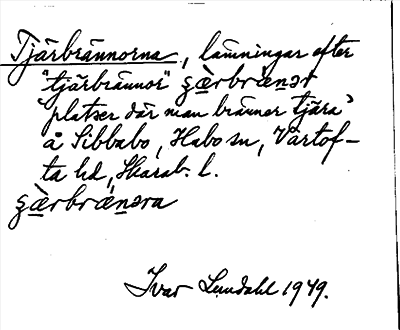 Tjärbrännorna, lämningar efter
"tjärbrännor" ʂæ̀rbrænər
"platser där man bränner tjära"
å Sibbabo, Habo sn, Vartof-
ta hd, Skarab. l.
ʂæ̀rbrænəra
Ivar Lundahl 1949.